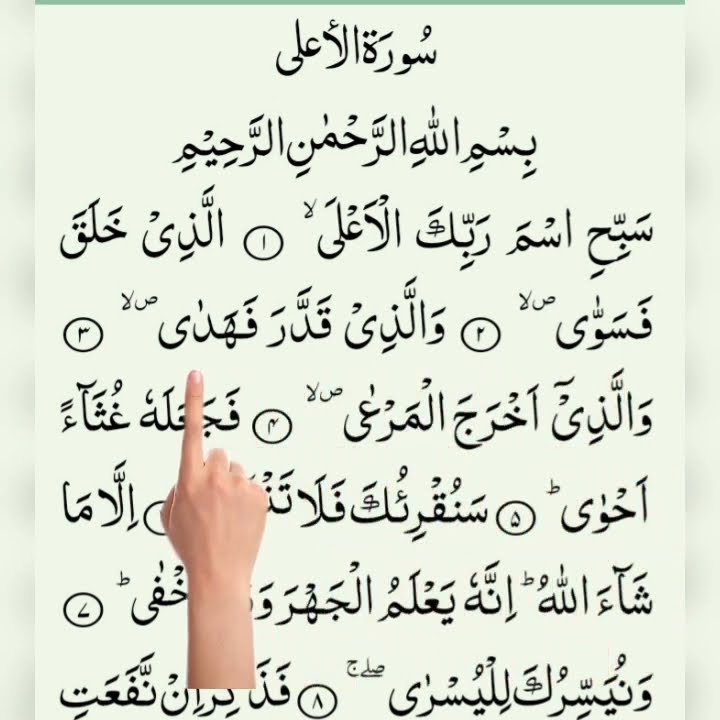 سُورَةُ الأعلى
بِسْمِ اللّٰهِ الرَّحْمٰنِ الرَّحِيْمِ
سَبِّحِ اسْمَ رَبِّكَ الْاَعْلَى ۙ ۝۱ الَّذِىْ خَلَقَ
فَسَوّٰى ۪ۙ ۝۲ وَالَّذِىْ قَدَّرَ فَهَدٰى ۪ۙ ۝۳
وَالَّذِىْٓ اَخْرَجَ الْمَرْعٰى ۪ۙ ۝۴ فَجَعَلَهٗ غُثَآءً
اَحْوٰى ؕ ۝۵ سَنُقْرِئُكَ فَلَا اِلَّا مَا
شَآءَ اللّٰهُ ؕ اِنَّهٗ يَعْلَمُ الْجَهْرَ ؕ ۝۷
وَنُيَسِّرُكَ لِلْيُسْرٰى ۖۚ ۝۸ فَذَكِّرْ اِنْ نَّفَعَتِ